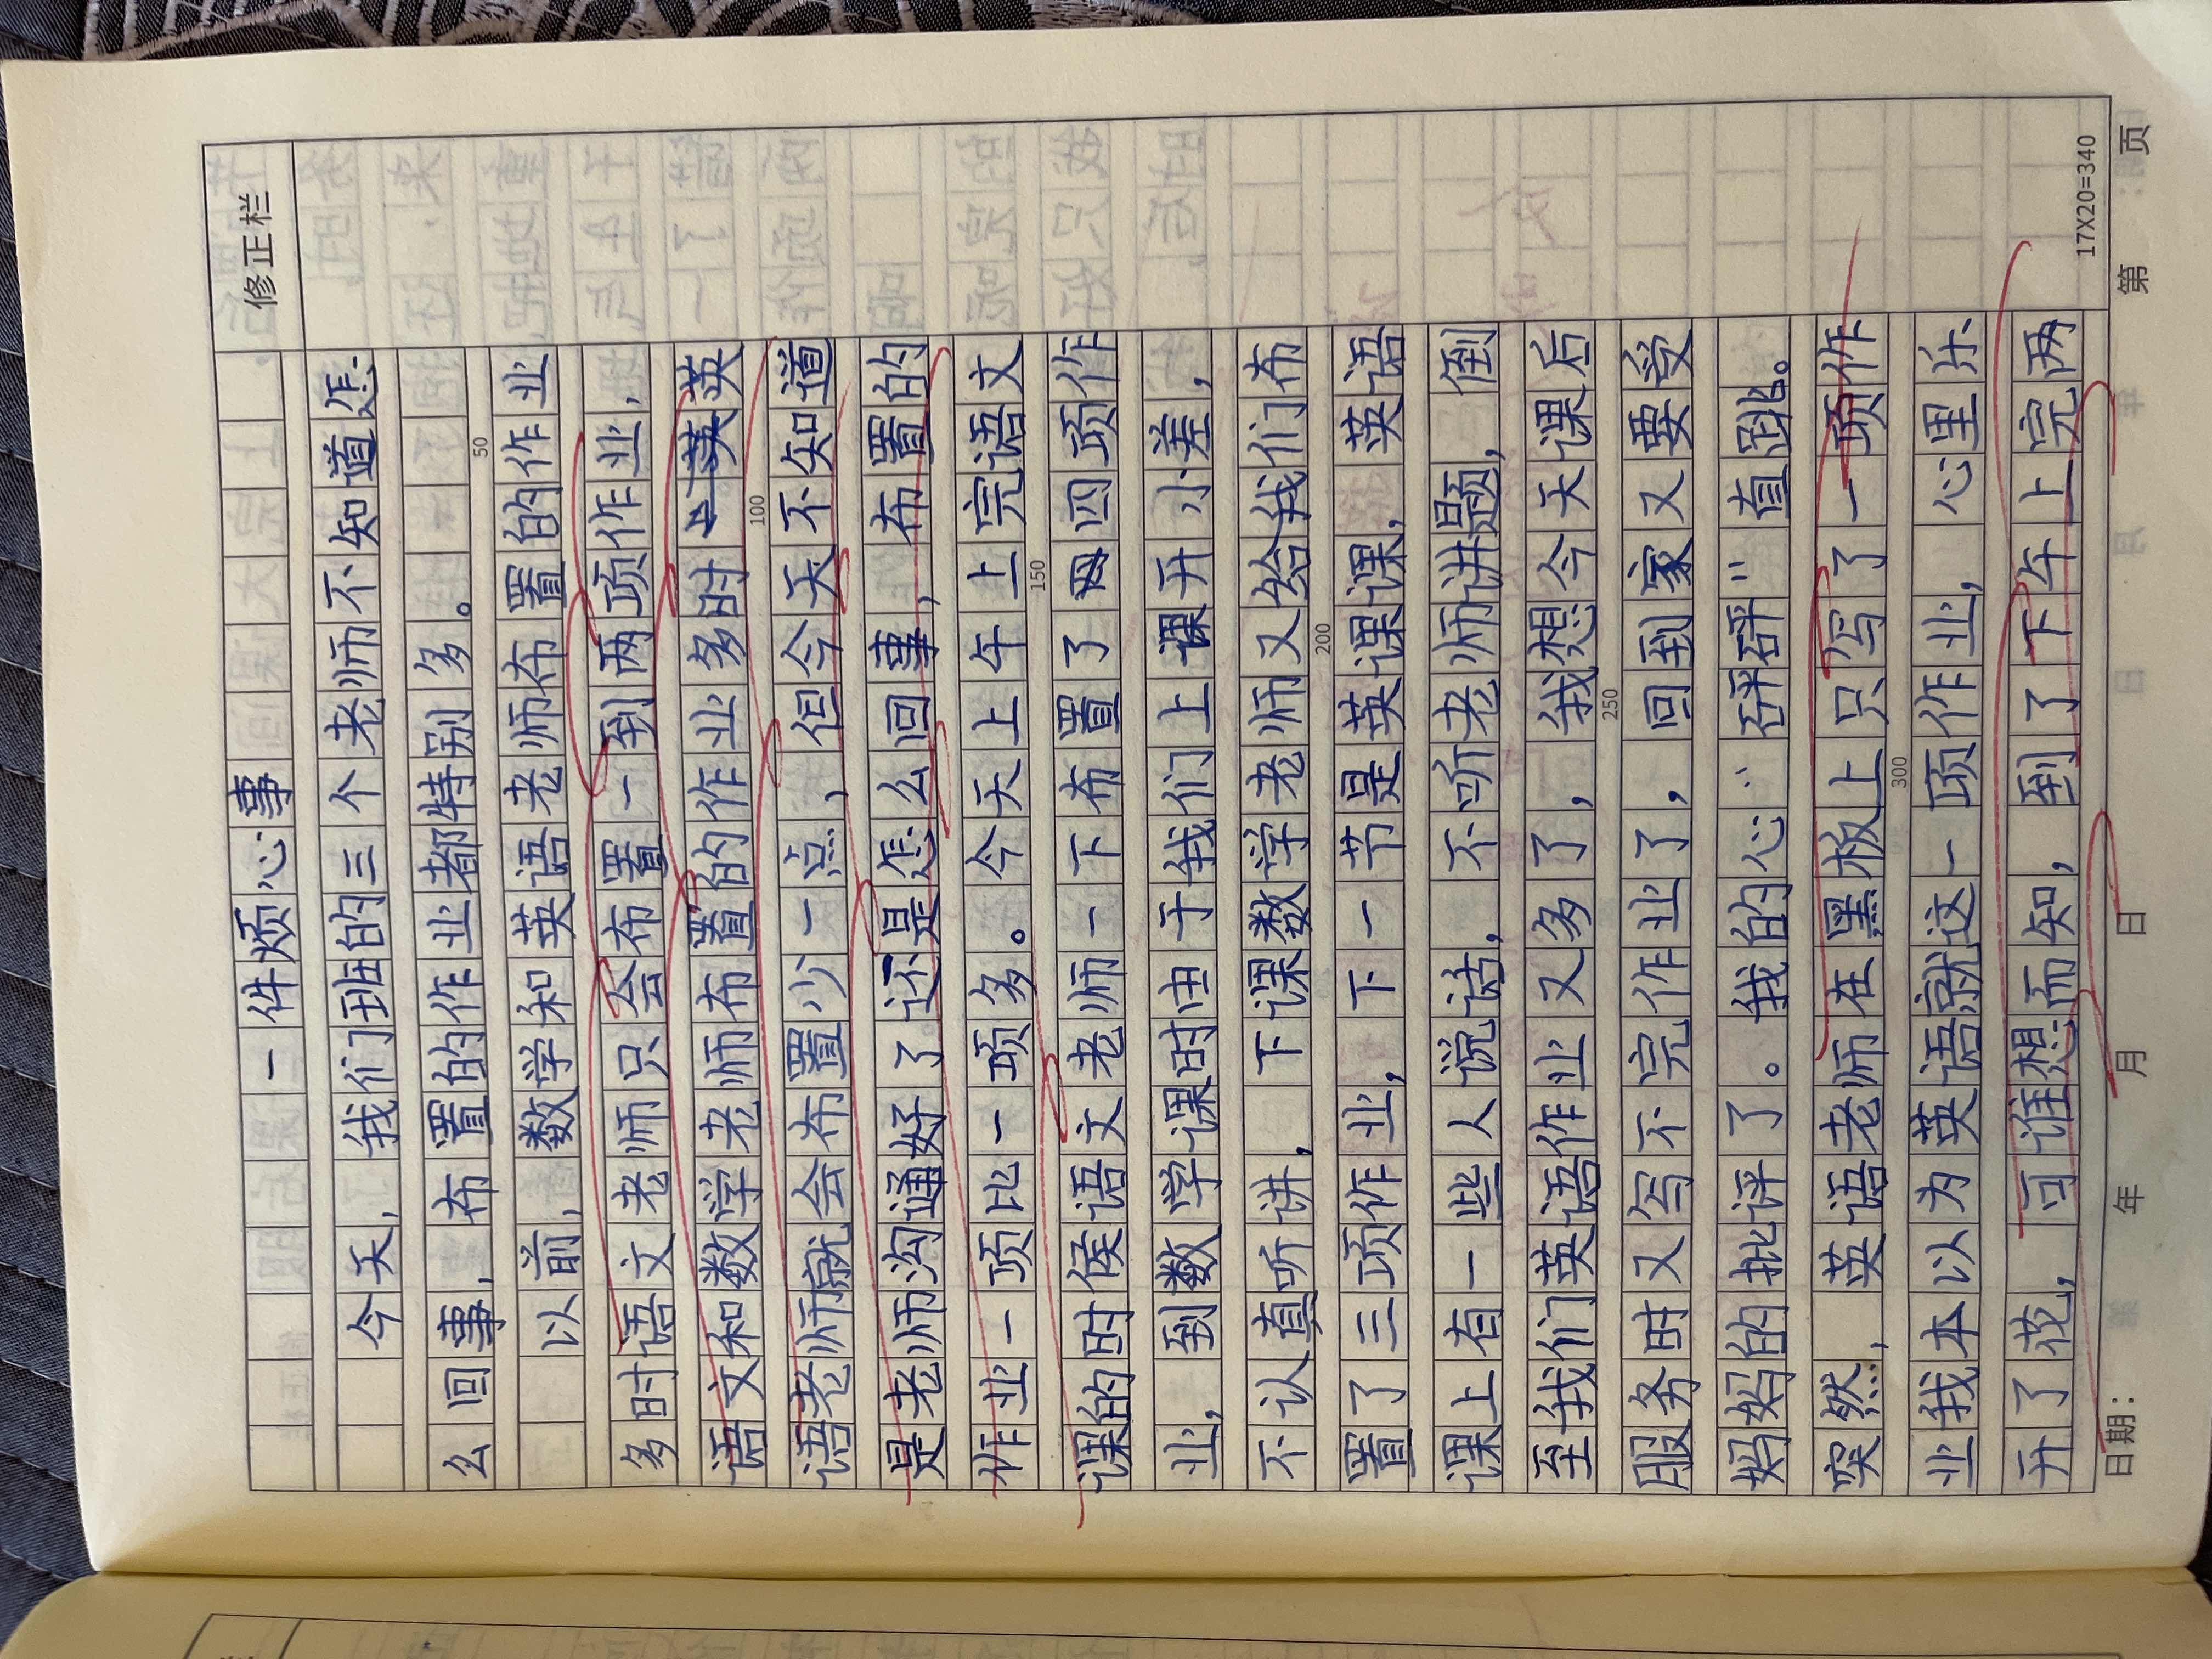 修正栏
一件烦心事
今天，我们班的三个老师不知道怎
么回事，布置的作业都特别多。
以前，数学和英语老师布置的作业
多时语文老师只会布置一到两项作业，
语文和数学老师布置的作业多时英
语老师就会布置少一点，但今天不知道
是老师沟通好了还是怎么回事，布置的
作业一项比一项多。今天上午上完语文
课的时候语文老师一下布置了四项作
业，到数学课时由于我们上课开小差，
不认真听讲，下课数学老师又给我们布
置了三项作业，下一节是英课课，英语
课上有一些人说话，不听老师讲题，倒
至我们英语作业又多了，我想今天课后
服务时又写不完作业了，回到家又要受
妈妈的批评了。我的心"砰砰"直跳。
突然，英语老师在黑板上只写了一项作
业我本以为英语就这一项作业，心里乐
开了花，可谁想而知，到了下午上完两
50
100
150
200
250
300
17X20=340
日期： 年 月 日 第 页